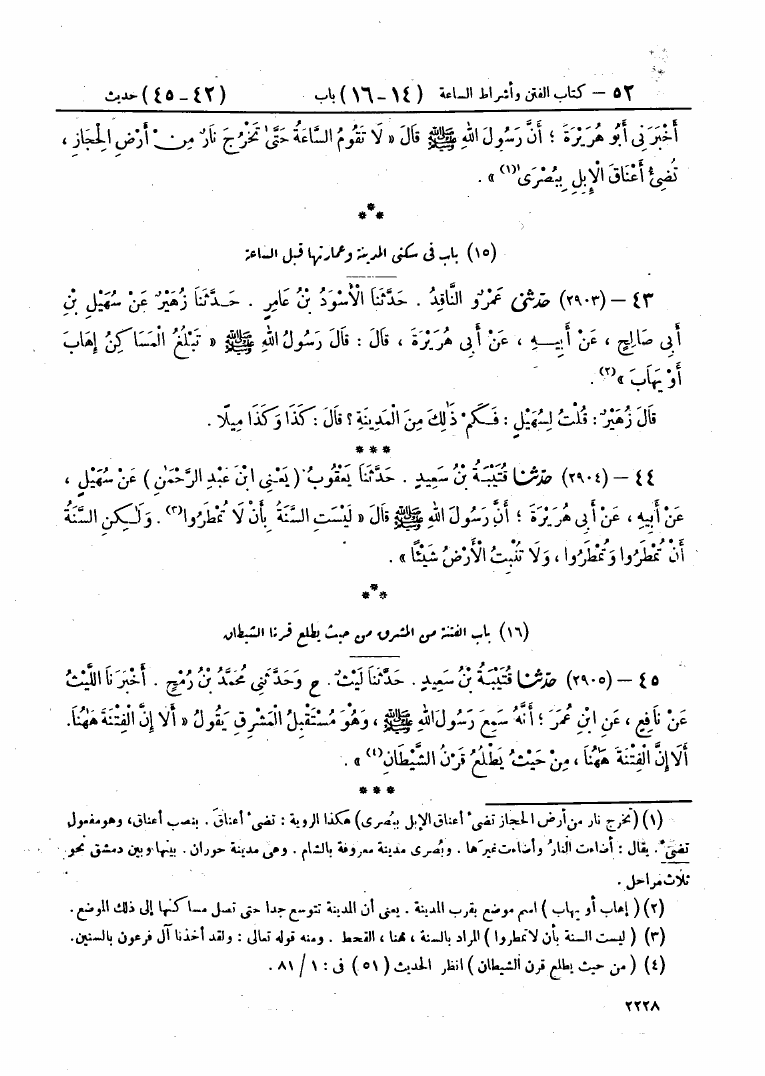 ٥٢ – كتاب الفتن وأشراط الساعة (١٤ – ١٦) باب (٤٢ – ٤٥) حديث
أَخْبَرَنِي أَبُو هُرَيْرَةَ ؛ أَنَّ رَسُولَ اللهِ ﷺ قَالَ « لَا تَقُومُ السَّاعَةُ حَتَّىٰ تَخْرُجَ نَارٌ مِنْ أَرْضِ الْحِجَازِ ،
تُضِيءُ أَعْنَاقَ الْإِبِلِ بِبُصْرَى(١) » .
***
(١٥) باب فى سكنى المدينة وعمارتها قبل الساعة
٤٣ – (٢٩٠٣) حدثنى عَمْرٌو النَّاقِدُ . حَدَّثَنَا الْأَسْوَدُ بْنُ عَامِرٍ . حَدَّثَنَا زُهَيْرٌ عَنْ سُهَيْلِ بْنِ
أَبِي صَالِحٍ ، عَنْ أَبِيهِ ، عَنْ أَبِي هُرَيْرَةَ ، قَالَ : قَالَ رَسُولُ اللهِ ﷺ « تَبْلُغُ الْمَسَاكِنُ إِهَابَ
أَوْ يَهَابَ »(٢) .
قَالَ زُهَيْرٌ : قُلْتُ لِسُهَيْلٍ : فَكَمْ ذٰلِكَ مِنَ الْمَدِينَةِ ؟ قَالَ : كَذَا وَكَذَا مِيلًا .
***
٤٤ – (٢٩٠٤) حدثنا قُتَيْبَةُ بْنُ سَعِيدٍ . حَدَّثَنَا يَعْقُوبُ ( يَعْنِي ابْنَ عَبْدِ الرَّحْمٰنِ ) عَنْ سُهَيْلٍ ،
عَنْ أَبِيهِ ، عَنْ أَبِي هُرَيْرَةَ ؛ أَنَّ رَسُولَ اللهِ ﷺ قَالَ « لَيْسَتِ السَّنَةُ بِأَنْ لَا تُمْطَرُوا(٣) . وَلٰكِنِ السَّنَةُ
أَنْ تُمْطَرُوا وَتُمْطَرُوا ، وَلَا تُنْبِتُ الْأَرْضُ شَيْئًا » .
***
(١٦) باب الفتنة من المشرق من حيث يطلع قرنا الشيطان
٤٥ – (٢٩٠٥) حدثنا قُتَيْبَةُ بْنُ سَعِيدٍ . حَدَّثَنَا لَيْثٌ . ح وَحَدَّثَنِي مُحَمَّدُ بْنُ رُمْحٍ . أَخْبَرَنَا اللَّيْثُ
عَنْ نَافِعٍ ، عَنِ ابْنِ عُمَرَ ؛ أَنَّهُ سَمِعَ رَسُولَ اللهِ ﷺ ، وَهُوَ مُسْتَقْبِلُ الْمَشْرِقِ يَقُولُ « أَلَا إِنَّ الْفِتْنَةَ هٰهُنَا .
أَلَا إِنَّ الْفِتْنَةَ هٰهُنَا ، مِنْ حَيْثُ يَطْلُعُ قَرْنُ الشَّيْطَانِ(٤) » .
***
(١) (تخرج نار من أرض الحجاز تضىء أعناق الإبل ببصرى) هكذا الروية : تضىء أعناقَ . بنصب أعناق ، وهو مفعول
تضىء . يقال : أضاءت النارُ وأضاءت غيرَها . وبُصرى مدينة معروفة بالشام . وهى مدينة حوران . بينها وبين دمشق نحو
ثلاث مراحل .
(٢) ( إهاب أو يهاب ) اسم موضع بقرب المدينة . يعنى أن المدينة تتوسع جدا حتى تصل مساكنها إلى ذلك الموضع .
(٣) ( ليست السنة بأن لا تمطروا ) المراد بالسنة ، ههنا ، القحط . ومنه قوله تعالى : ولقد أخذنا آل فرعون بالسنين .
(٤) ( من حيث يطلع قرن الشيطان ) انظر الحديث ( ٥١ ) فى : ١ / ٨١ .
٢٢٢٨